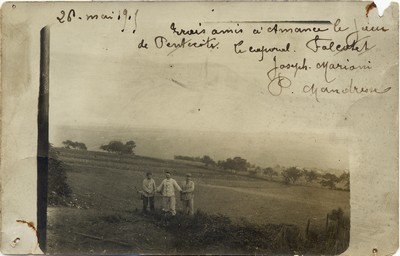 26 - mai 191
Trois amis à Amance le jour
de Pentecôte. Le caporal. Falcolet
Joseph. Marioni
P.